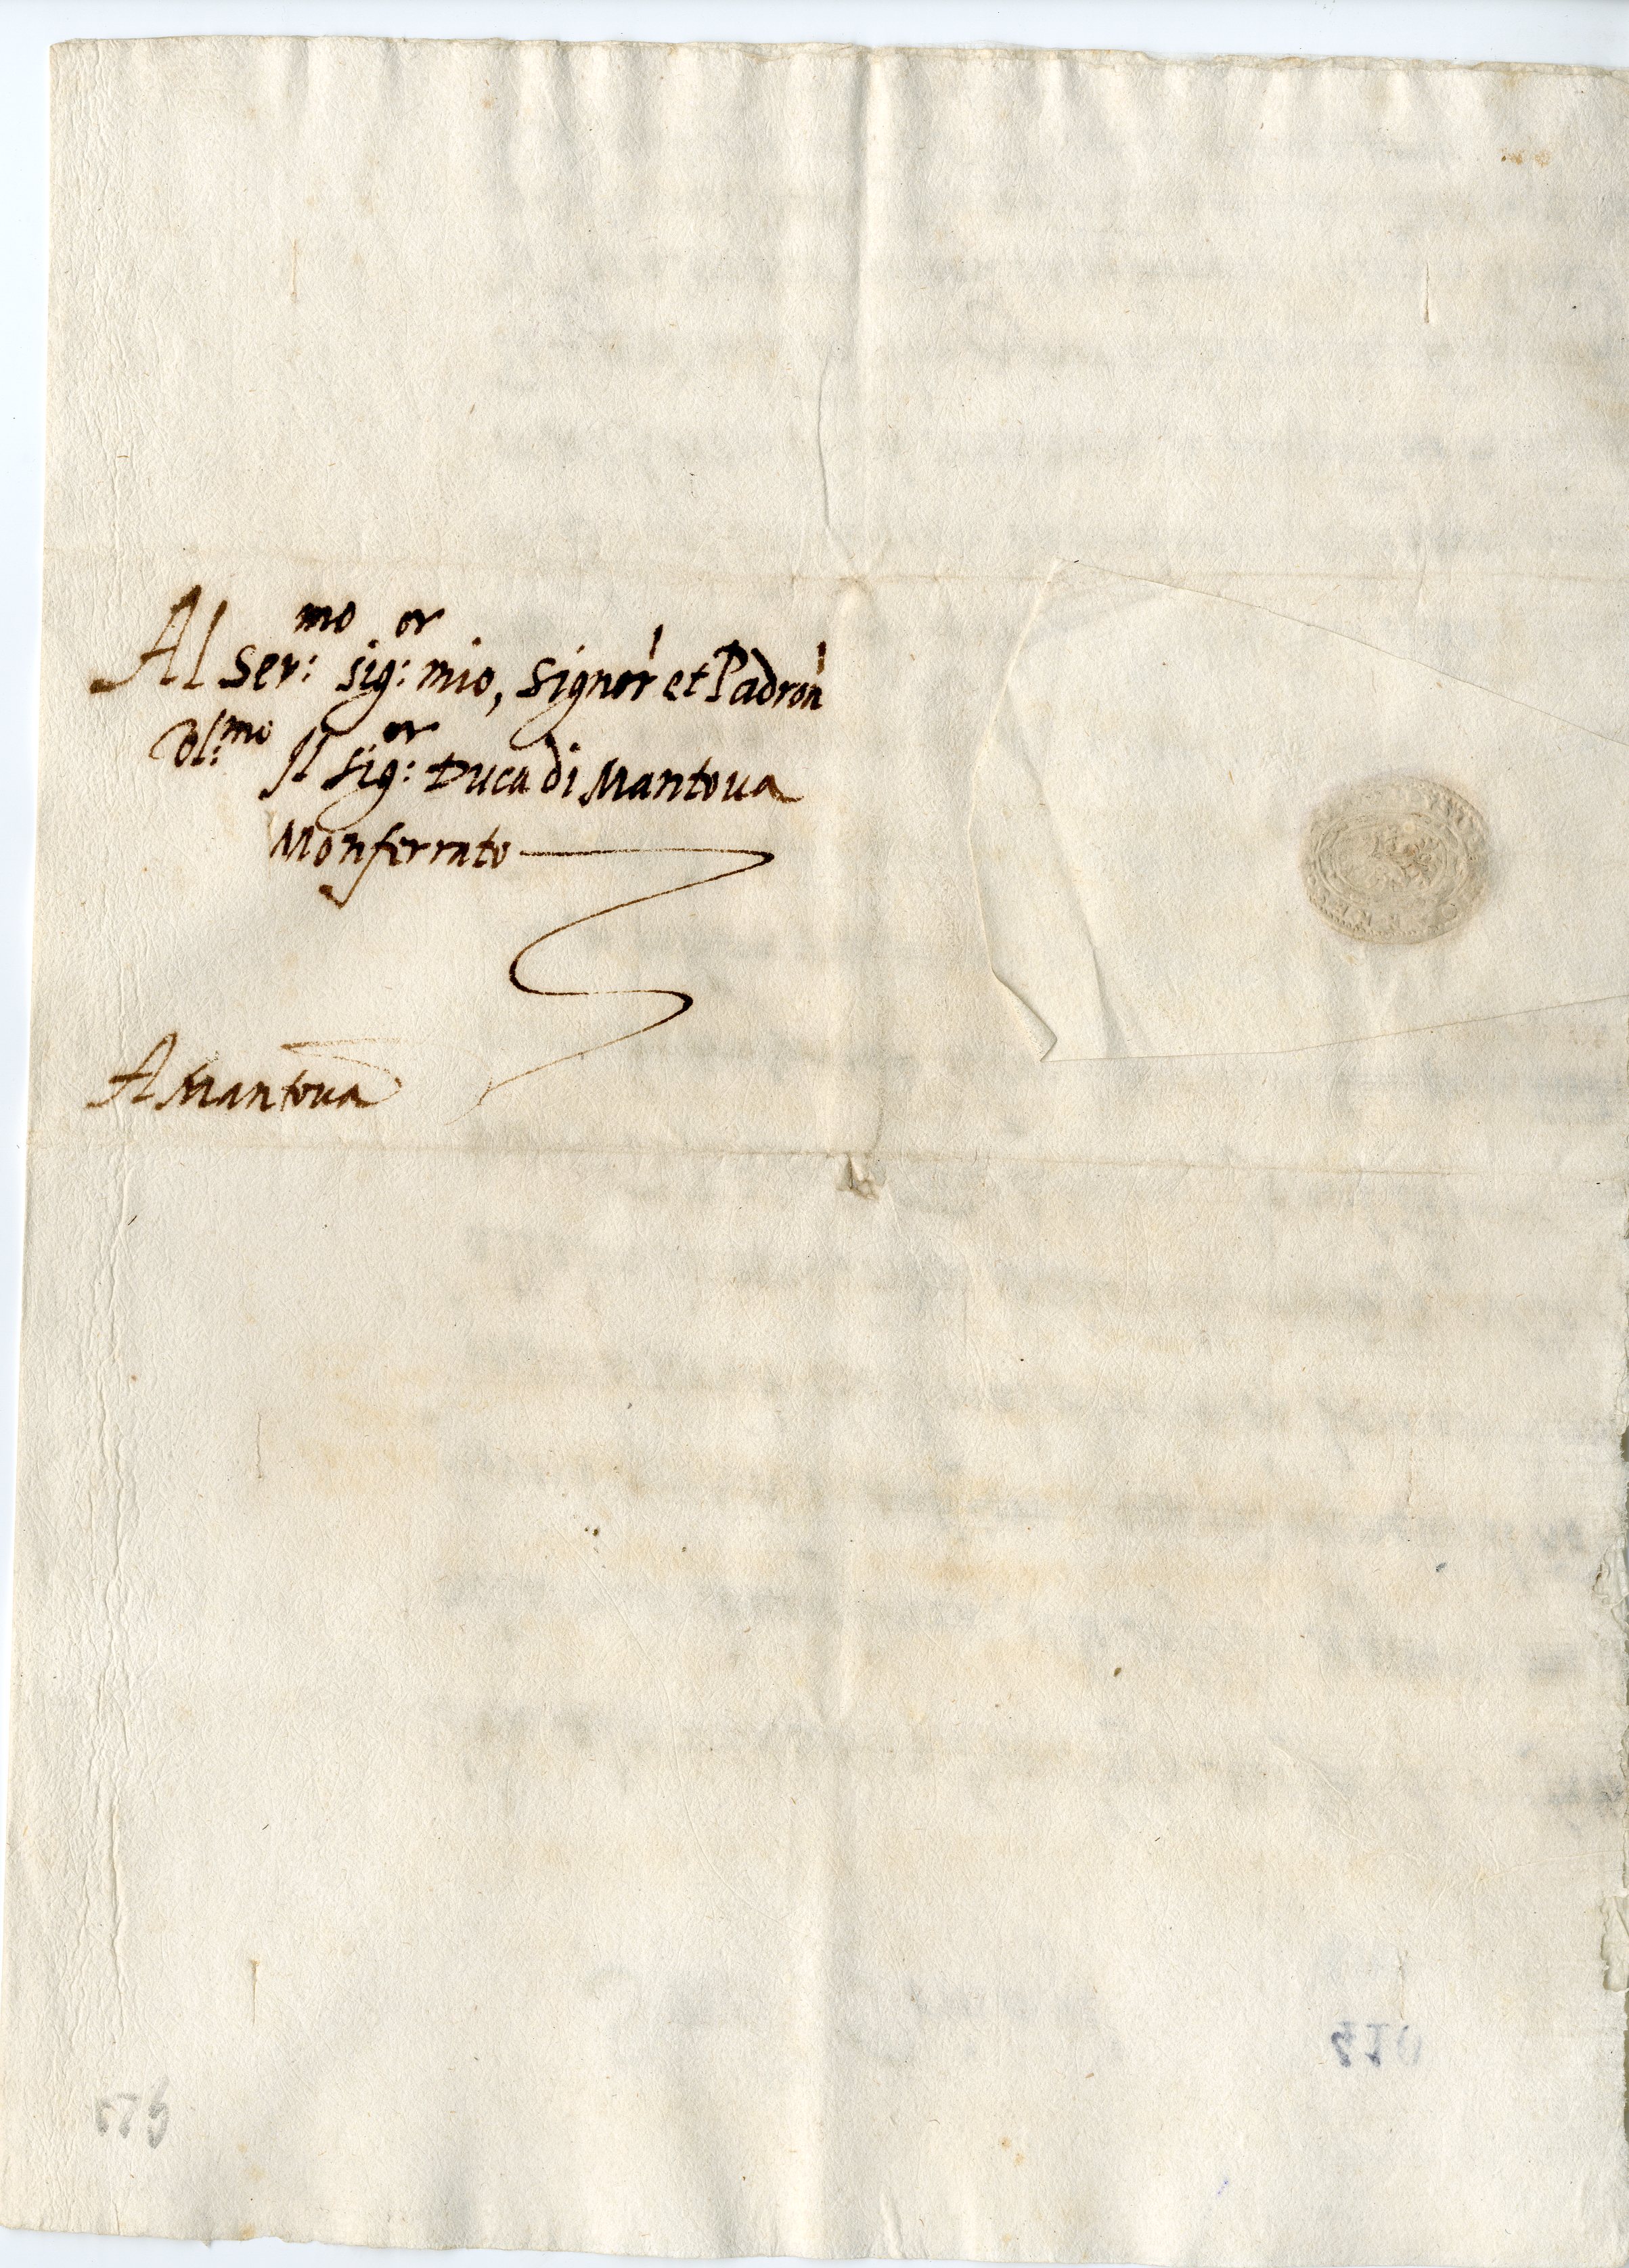 Al Ser:mo sig:or mio, signor et Padron
Col:mo Il sig:or Duca di Mantova
Monferrato
A Mantova